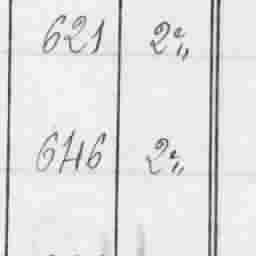 621 2 „
646 2 „